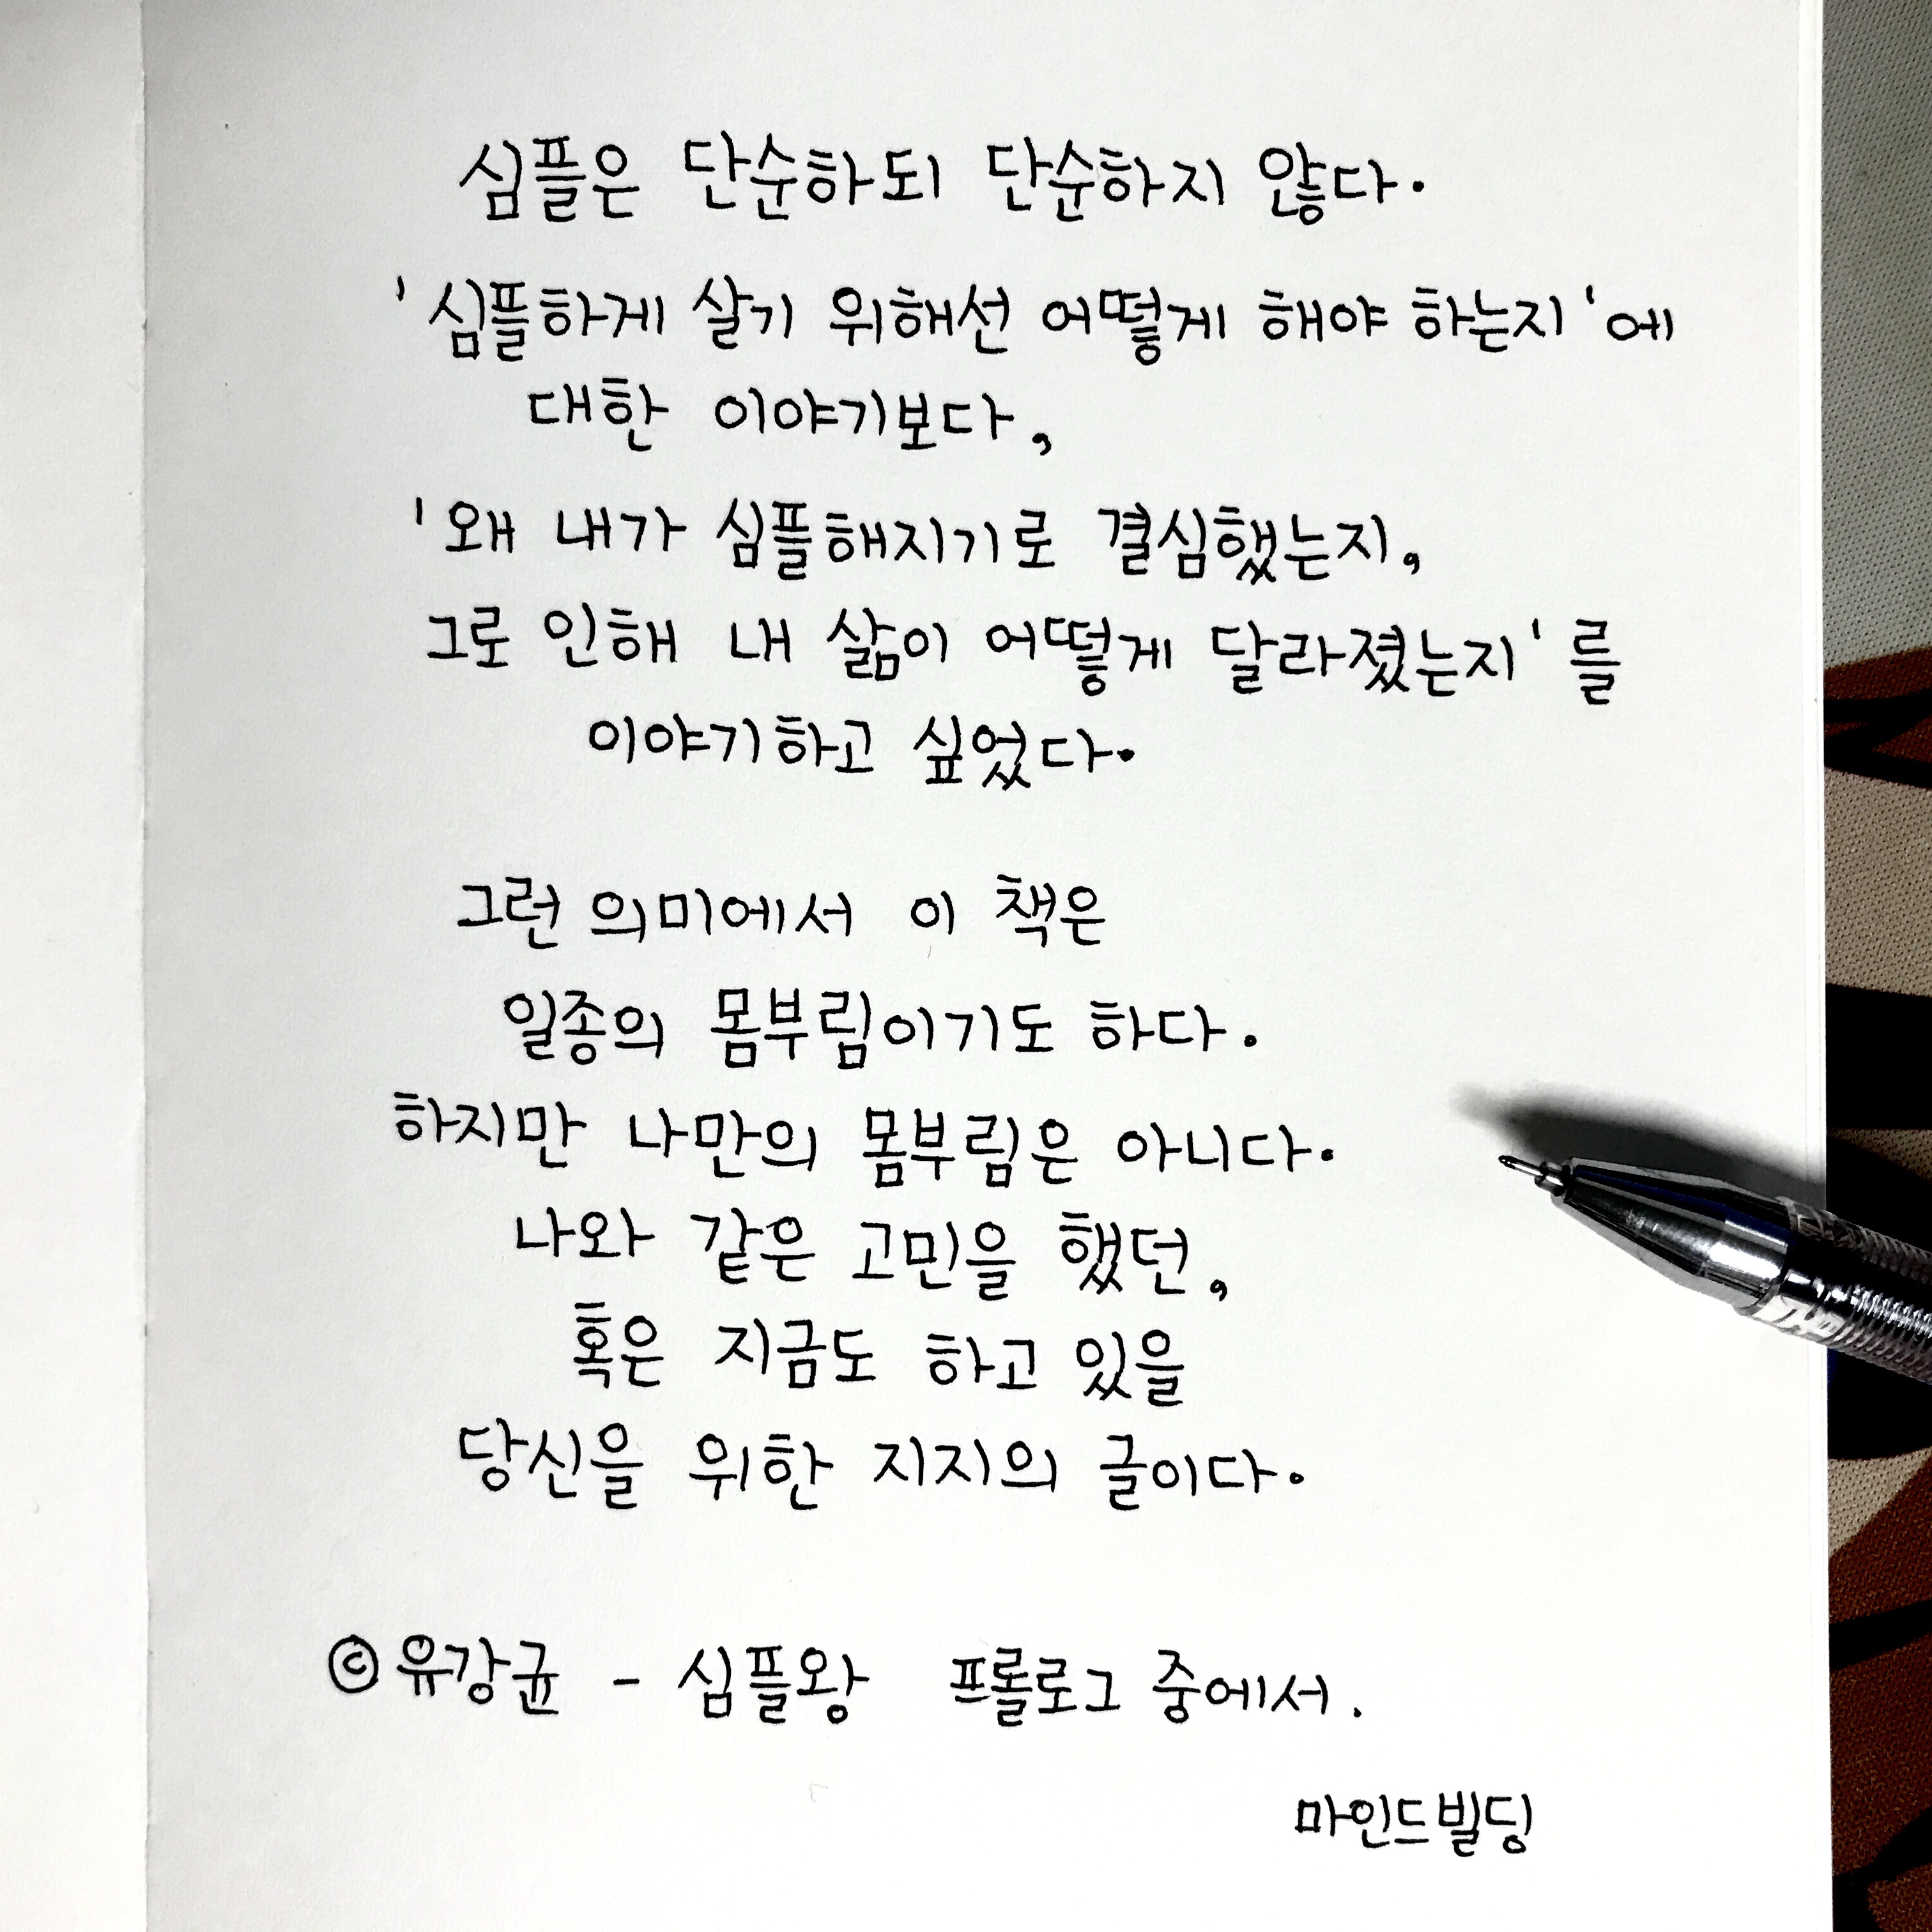 심플은 단순하되 단순하지 않다.
'심플하게 살기 위해선 어떻게 해야 하는지'에
대한 이야기보다,
'왜 내가 심플해지기로 결심했는지,
그로 인해 내 삶이 어떻게 달라졌는지'를
이야기하고 싶었다.
그런 의미에서 이 책은
일종의 몸부림이기도 하다.
하지만 나만의 몸부림은 아니다.
나와 같은 고민을 했던,
혹은 지금도 하고 있을
당신을 위한 지지의 글이다.
©유강균 - 심플왕 프롤로그 중에서.
마인드빌딩